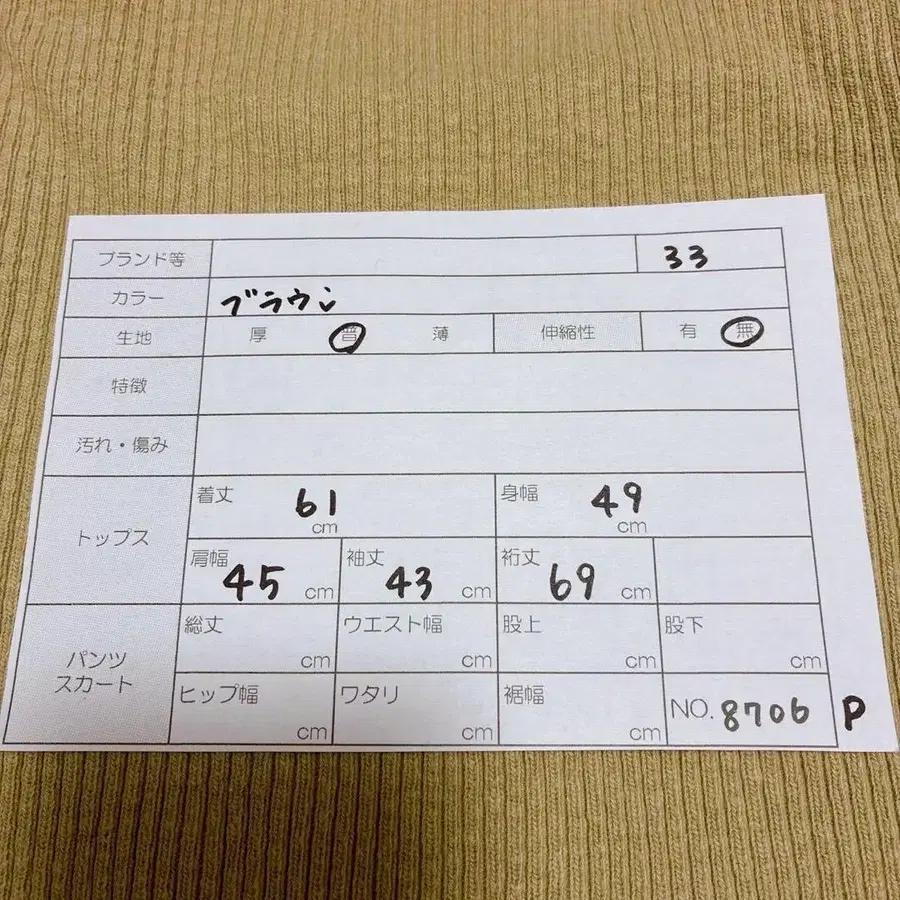 ブランド等 33
カラー ブラウン
生地 厚 普 薄 伸縮性 有 無
特徴
汚れ・傷み
トップス
着丈 61 cm 身幅 49 cm
肩幅 45 cm 袖丈 43 cm 裄丈 69 cm
パンツ
スカート
総丈 cm ウエスト幅 cm 股上 cm 股下 cm
ヒップ幅 cm ワタリ cm 裾幅 cm NO. 8706 P